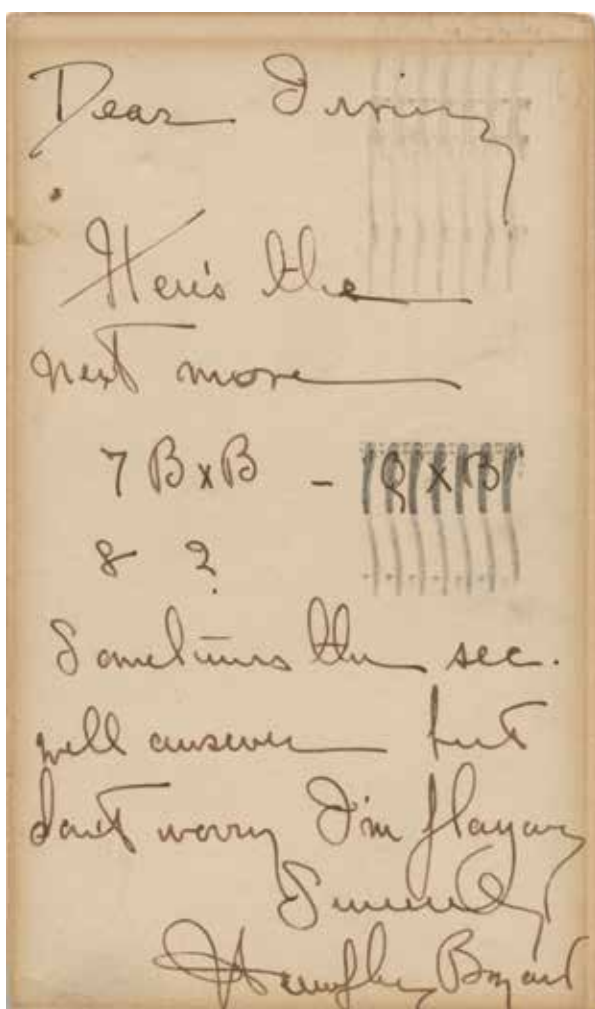 Dear Irving
Here's the
next move
7 BxB – QxB
8 ?
Sometimes the sec.
will answer but
don't worry I'm playing
Sincerely
Humphrey Bogart